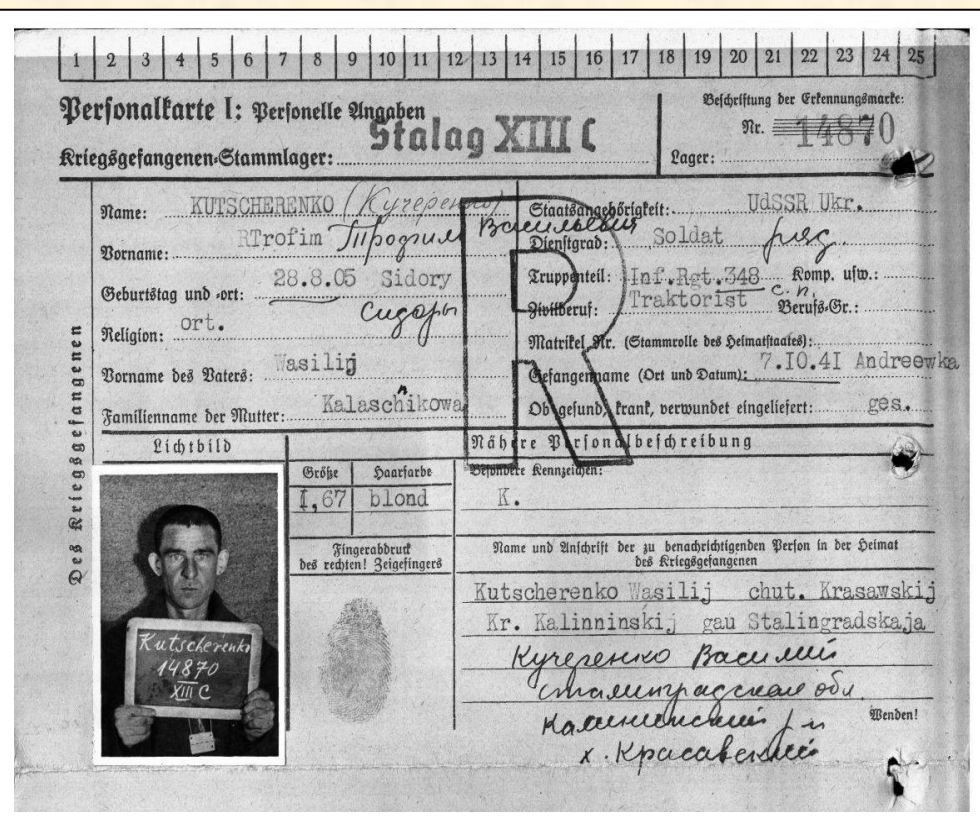 1 2 3 4 5 6 7 8 9 10 11 12 13 14 15 16 17 18 19 20 21 22 23 24 25
Personalkarte I: Personelle Angaben
Kriegsgefangenen-Stammlager: Stalag XIII C
Beschriftung der Erkennungsmarke:
Nr. 14870
Lager:
Des Kriegsgefangenen
Name: KUTSCHERENKO (Кучеренко)
Vorname: RTrofim Трофим Васильевич
Geburtstag und -ort: 28.8.05 Sidory
Сидоры
Religion: ort.
Vorname des Vaters: Wasilij
Familienname der Mutter: Kalaschnikowa
Staatsangehörigkeit: UdSSR Ukr.
Dienstgrad: Soldat ряд.
Truppenteil: Inf.Rgt.348 Komp. usw.:
с.п.
Zivilberuf: Traktorist Berufs-Gr.:
Matrikel Nr. (Stammrolle des Heimatstaates):
Gefangennahme (Ort und Datum): 7.I0.4I Andreewka
Ob gesund, krank, verwundet eingeliefert: ges.
R
Lichtbild
Nähere Personalbeschreibung
Größe Haarfarbe
I,67 blond
Besondere Kennzeichen:
K.
Fingerabdruck
des rechten! Zeigefingers
Name und Anschrift der zu benachrichtigenden Person in der Heimat
des Kriegsgefangenen
Kutscherenko Wasilij chut. Krasawskij
Kr. Kalinninskij gau Stalingradskaja
Кучеренко Василий
Сталинградская обл.
Калининский р-н
х. Красавский
Wenden!
Kutscherenko
14870
XIII C